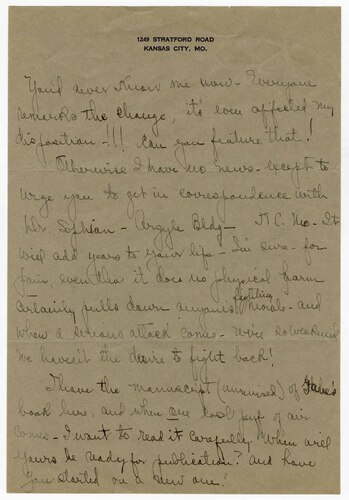 1249 STRATFORD ROAD
KANSAS CITY, MO.
You'd never know me now - Everyone
remarks the change, it's even affected my
disposition - !!! Can you feature that!
Otherwise I have no news - except to
urge you to get in correspondence with
Dr. Sophian - Argyle Bldg - K.C. Mo - It
will add years to your life - I'm sure - for
pain, even tho it does no physical harm
certainly pulls down anyone's fighting morals - and
when a serious attack comes - we're so weakened
we haven't the desire to fight back!
I have the manuscript (unrevised) of Jane's
book here, and when one cool puff of air
comes - I want to read it carefully. When will
yours be ready for publication? And have
you started on a new one?